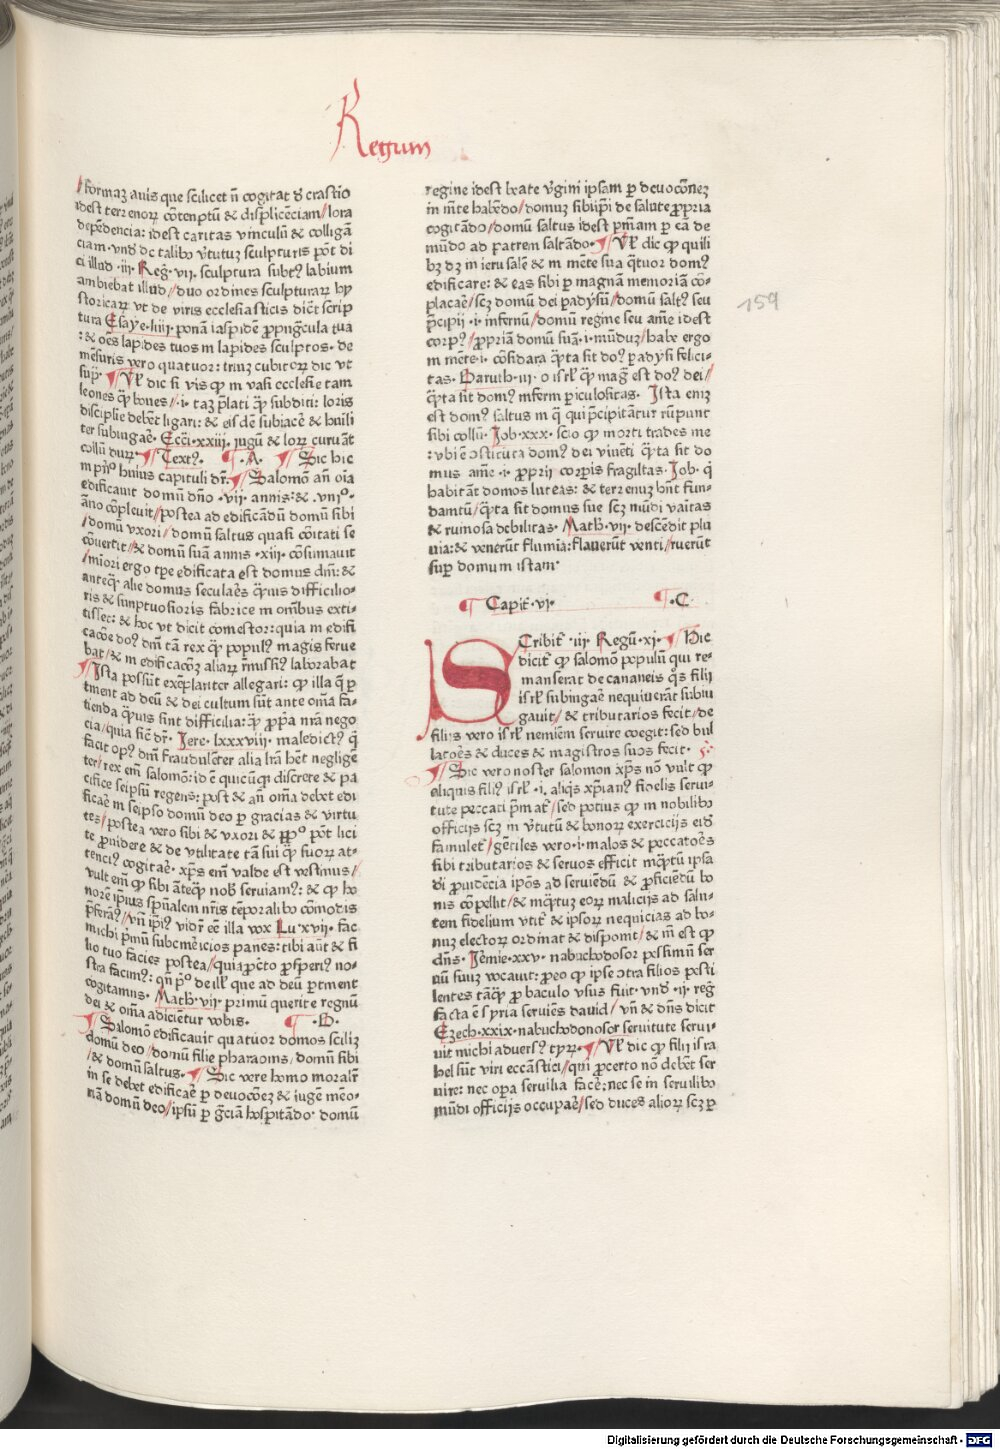 Regum
formaꝫ auis que scilicet n̄ cogitat d' crastīo
idest terrenoꝝ cōtemptū & displicēciam/lora
depēdencia: idest caritas vinculū & colligā
ciam·vnd' de talibꝰ v̓tutuꝫ sculpturis pōt di
ci illud·iii·Reg̓·vii·sculptura subtꝰ labium
ambiebat illud/duo ordines sculpturaꝝ hy
storicaꝝ vt de viris ecclesiasticis dic̄t scrip
tura Esaye·liiij·ponā iaspidē ꝓpugcula tua
:& oēs lapides tuos in lapides sculptos·de
mēsuris vero quatuor: triuꝫ cubitoꝝ dic vt
sup̄·¶Vl' dic si vis ꝙ in vasi ecclesie tam
leones q̄ȝ boues/·i·taꝫ p̄lati q̄ȝ subditi: loris
discipline debēt ligari: & eisdē subiacē & hūili
ter subiugaē·Ecci·xxiij·iugū & loꝝ curuāt
collū duꝝ·¶Textꝰ· ¶·A· ¶Sic hic
in pᵐᵒ huius capituli dr̄·¶Salomō an̄ oīa
edificauit domū dn̄o·vii·annis:& ·vnjᵒ·
ano cōpleuit/postea ad edificādū domū sibi
/domū vxori/domū saltus quasi cōitati se
cōuertit/& domū suā annis·xiij·cōsumauit
/miori ergo tp̄e edificata est domus dn̄i:&
anteq̄ȝ alie domus seculaēs q̄uis difficilio-
ris & sumptuosioris fabrice in om̄ibus exti-
tissēt:& hoc vt dicit comestor: quia in edifi
cacōe doꝰ dn̄i tā rex q̄ȝ populꝰ magis ferue
bāt/& in edificacōeꝫ aliaꝝ r̄missiꝰ laborabāt
¶Ista possūt exēplariter allegari: ꝙ illa q̄ ꝑ
tinent ad deū & dei cultum sūt ante om̄ia fa-
tienda q̄uis sint difficilia: q̄ȝ ꝓp̄a nr̄a nego
cia/quia sic dr̄·Jere·lxxxviij·maledictꝰ q̄
facit opꝰ dn̄i fraudulēter alia lr̄a hēt neglige
ter/rex em̄ salomō: id ē quicūqȝ discrete & pa
cifice seipsū regens: post & an̄ om̄ia debet edi
ficaē in seipso domū deo ꝑ gracias & virtu
tes/postea vero sibi & vxori & pp̄ᵒ pōt lici
te ꝓuidere & de vtilitate tā sui q̄ȝ suoꝝ at-
tenciꝰ cogitaē·xp̄s em̄ valde est vestimus/
vult em̄ ꝙ sibi āteq̄ȝ nob̓ seruiamꝰ:& ꝙ ho
norē ipsius sp̄ualem nr̄is tēporalibꝰ cōmodis
p̄ferāꝰ/vn̄ ip̄iꝰ vidr̄ eē illa vox Lu·xvii·fac
michi p̄mū subcinēicios panes: tibi aūt & fi
lio tuo facies postea/quia ꝓcto ꝓsꝑiꝰ no-
stra facimꝰ: qn̄ pᵒ de ill' que ad deū ꝑtinent
cogitamus·Math̓·vij·primū querite regnū
dei & om̄ia adicietur vobis· ¶·B·
¶Salomō edificauit quatuor domos sciliꝫ
domū deo/domū filie pharaonis/domū sibi
/& domū saltus·¶Sic vere homo moralr̄
in se debet edificaē ꝑ deuocōeꝫ & iuge meo-
riā domū deo/ipsū ꝑ gr̄ciā hospitādo·domū
regine idest bꝛate v̓ginī ipsam ꝑ deuocōneꝫ
in m̄te habēdo/domuꝫ sibiip̄i de salute ꝓpria
cogitādo/domū saltus idest p̄niam ꝑ eā de
mūdo ad patrem saltādo·¶Vl' dic ꝙ quili
bꝫ dꝫ in ierusalē & in mēte sua q̄tuor domꝰ
edificare:& eas sibi ꝑ magnā memoriā cō-
placaē/scꝫ domū dei padysū/domū saltꝰ seu
p̄cipij·i·infernū/domū regine seu aīe idest
corpꝰ/ꝓpriā domū suā·i·mūduꝫ/habe ergo
in mēte·i·cōsidara q̄ta sit doꝰ padysi felici-
tas·Baruth·iij·o isrl' q̄ȝ mag̓ est doꝰ dei/
q̄ta sit domꝰ inferni piculositas·Ista eniꝫ
est domꝰ saltus in q̄ qui p̄cipitātur rūpunt
sibi collū·Job·xxx·scio ꝙ morti trades me
:vbi ē ꝯstituta domꝰ dei viuēti q̄ta sit do
mus aīe·i·ꝓprij corꝑis fragiltas·Job·q̄
habitāt domos luteas:& terrenuꝫ hn̄t fun-
damtū/q̄ta sit domus sue scꝫ mūdi vaitas
& ruinosa debilitas·Math̓·vij·descēdit plu
uia:& venerūt flumia: flauerūt venti/ruerūt
suꝑ domum istam·
159
¶ Capit̄·vi· ¶·C
SCribit̄·iij·Regū·xi·¶Hic
dicit̄ ꝙ salomō populū qui re-
manserat de cananeis q̄s filij
isrl' subiugaē nequiuerāt subiu
gauit/& tributarios fecit/de
filijs vero isrl' neminēm seruire coegit: sed bul
latoēs & duces & magistros suos fecit·
¶Sic vero noster salomon xp̄s nō vult ꝙ
aliquis filiꝰ isrl'·i·aliq̄s xp̄ianꝰ fidelis serui-
tute peccati p̄mat̄/sed potius ꝙ in nobilibꝰ
officijs scꝫ in v̓tutū & bonoꝝ exercicijs eid'
famulet̄/gētiles vero·i·malos & peccatoēs
sibi tributarios & seruos efficit inq̄tum ipsa
di ꝓuidēcia ip̄os ad seruiēdū & ꝓficiēdū bo
nis cōpellit/& inq̄tuꝫ eoꝝ malicijs ad salu-
tem fidelium vtit̄ & ipsoꝝ nequicias ad bo-
nuꝫ electoꝝ ordinat & disponit/& in̄ est ꝙ
dn̄s·Jēmie·xxv·nabuchodosor pessimū ser
uū suuꝫ vocauit: ꝓeo ꝙ ipse ꝯtra filios pesti
lentes tāq̄ȝ ꝓ baculo vsus fuit·vnd' ·ij·reg̓
facta ē syria seruiēs dauid/vn̄ & dn̄s dicit
Ezech·xxix·nabuchodonosor seruitute serui-
uit michi aduersꝰ tyꝝ·¶Vl' dic ꝙ filij isra
hel sūt viri eccāstici/qui ꝓcerto nō debēt ser
uire: nec oꝑa seruilia facē: nec se in seruilibꝰ
mūdi officijs occupaē/sed duces alioꝝ scꝫ ꝑ
Digitalisierung gefördert durch die Deutsche Forschungsgemeinschaft - DFG